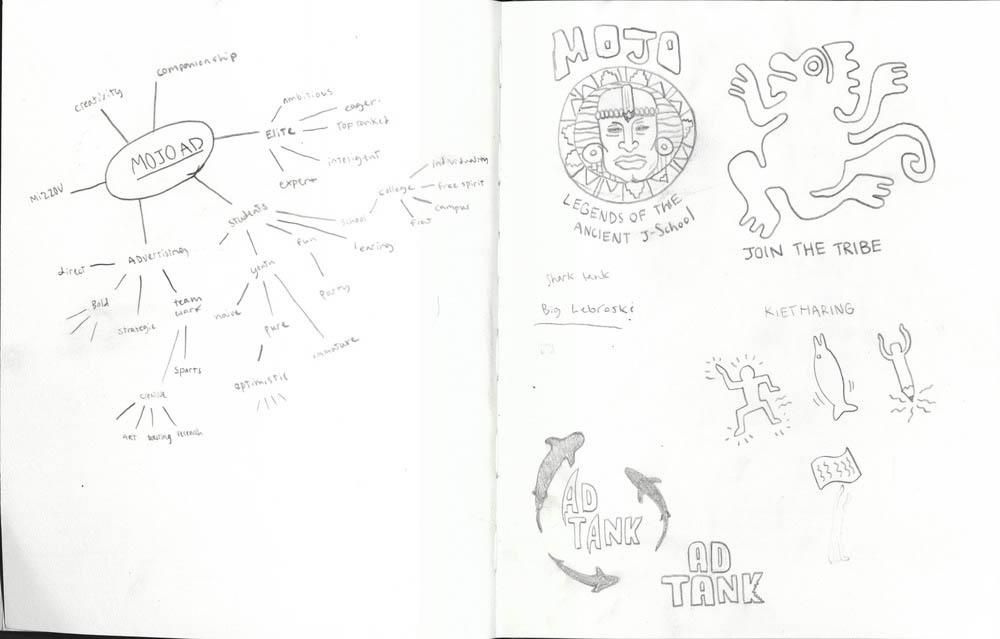 companionship
creativity
MOJO AD
MIZZOU
Elite
ambitious
eager
Top ranked
intelligent
expert
students
school
college
individuality
free spirit
campus
frat
fun
party
youth
naive
pure
optimistic
immature
Advertising
direct
Bold
strategic
team
work
sports
ART
research
MOJO
LEGENDS OF THE
ANCIENT J-School
JOIN THE TRIBE
Shark tank
Big Lebroski
KIETHARING
AD
TANK
AD
TANK